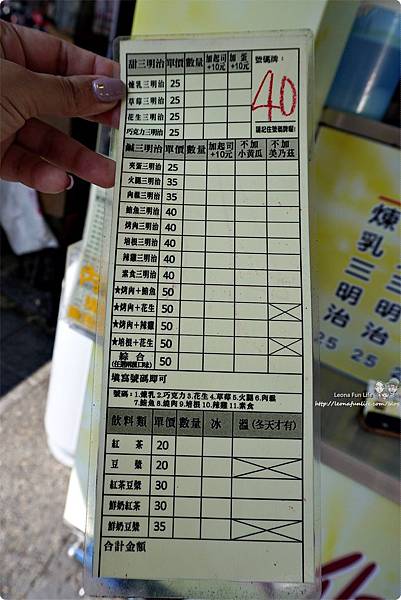 甜三明治 單價 數量 加起司+10元 加蛋+10元 號碼牌:
煉乳三明治 25 40
草莓三明治 25
花生三明治 25 請記住號碼牌喔!
巧克力三明治 25
鹹三明治 單價 數量 加起司+10元 不加小黃瓜 不加美乃滋
夾蛋三明治 25
火腿三明治 35
肉鬆三明治 35
鮪魚三明治 40
烤肉三明治 40
培根三明治 40
辣雞三明治 40
素食三明治 40
★烤肉+鮪魚 50
★烤肉+花生 50
★烤肉+辣雞 50
★培根+花生 50
綜合 50
填寫號碼即可
號碼:1.煉乳 2.巧克力 3.花生 4.草莓 5.火腿 6.肉鬆
7.鮪魚 8.燒肉 9.培根 10.辣雞 11.素食
飲料類 單價 數量 冰 溫(冬天才有)
紅茶 20
豆漿 20
紅茶豆漿 30
鮮奶紅茶 30
鮮奶豆漿 35
合計金額
煉乳三明治 25
Leona Fun Life